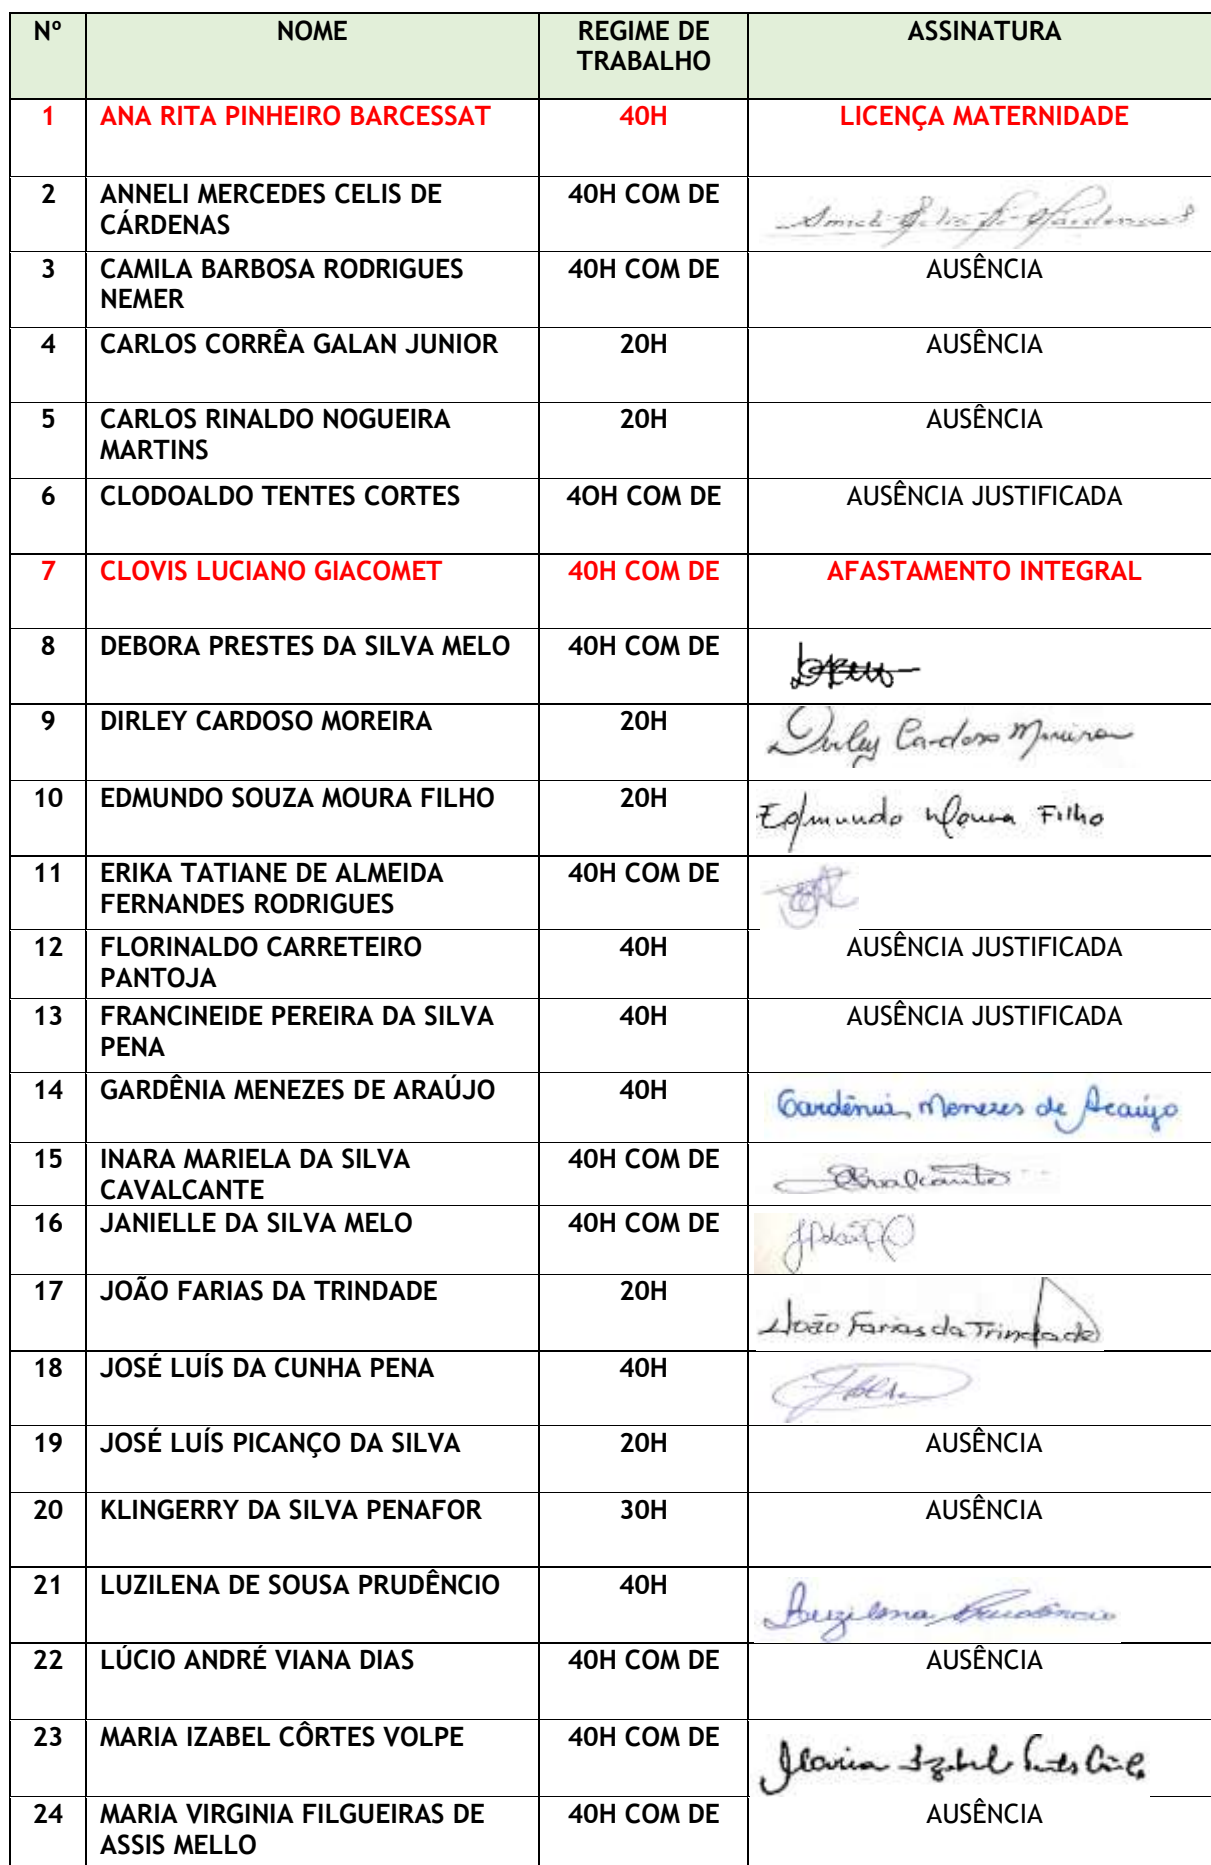 Nº NOME REGIME DE TRABALHO ASSINATURA
1 ANA RITA PINHEIRO BARCESSAT 40H LICENÇA MATERNIDADE
2 ANNELI MERCEDES CELIS DE CÁRDENAS 40H COM DE
3 CAMILA BARBOSA RODRIGUES NEMER 40H COM DE AUSÊNCIA
4 CARLOS CORRÊA GALAN JUNIOR 20H AUSÊNCIA
5 CARLOS RINALDO NOGUEIRA MARTINS 20H AUSÊNCIA
6 CLODOALDO TENTES CORTES 4OH COM DE AUSÊNCIA JUSTIFICADA
7 CLOVIS LUCIANO GIACOMET 40H COM DE AFASTAMENTO INTEGRAL
8 DEBORA PRESTES DA SILVA MELO 40H COM DE
9 DIRLEY CARDOSO MOREIRA 20H Dirley Cardoso Moreira
10 EDMUNDO SOUZA MOURA FILHO 20H Edmundo Moura Filho
11 ERIKA TATIANE DE ALMEIDA FERNANDES RODRIGUES 40H COM DE
12 FLORINALDO CARRETEIRO PANTOJA 40H AUSÊNCIA JUSTIFICADA
13 FRANCINEIDE PEREIRA DA SILVA PENA 40H AUSÊNCIA JUSTIFICADA
14 GARDÊNIA MENEZES DE ARAÚJO 40H Gardênia Menezes de Araújo
15 INARA MARIELA DA SILVA CAVALCANTE 40H COM DE Cavalcante
16 JANIELLE DA SILVA MELO 40H COM DE
17 JOÃO FARIAS DA TRINDADE 20H João Farias da Trindade
18 JOSÉ LUÍS DA CUNHA PENA 40H
19 JOSÉ LUÍS PICANÇO DA SILVA 20H AUSÊNCIA
20 KLINGERRY DA SILVA PENAFOR 30H AUSÊNCIA
21 LUZILENA DE SOUSA PRUDÊNCIO 40H Luzilena Prudêncio
22 LÚCIO ANDRÉ VIANA DIAS 40H COM DE AUSÊNCIA
23 MARIA IZABEL CÔRTES VOLPE 40H COM DE Maria Izabel
24 MARIA VIRGINIA FILGUEIRAS DE ASSIS MELLO 40H COM DE AUSÊNCIA